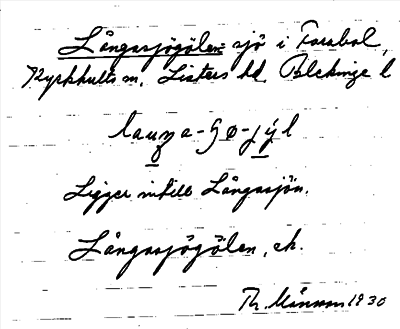 Långasjögölen = sjö i Farabol,
Kyrkhults sn, Listers hd, Blekinge l
Ligger intill Långasjön.
Långasjögölen, ek.
Th. Månsson 1930